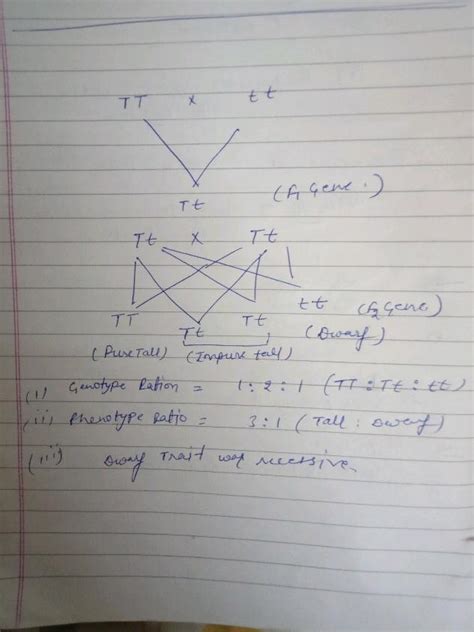 TT x tt
Tt (F1 Gene.)
Tt x Tt
TT Tt Tt tt (F2 Gene)
(Pure Tall) (Impure tall) (Dwarf)
(i) Genotype Ration = 1:2:1 (TT:Tt:tt)
(ii) Phenotype Ratio = 3:1 (Tall: Dwarf)
(iii) Dwarf Trait was recessive.